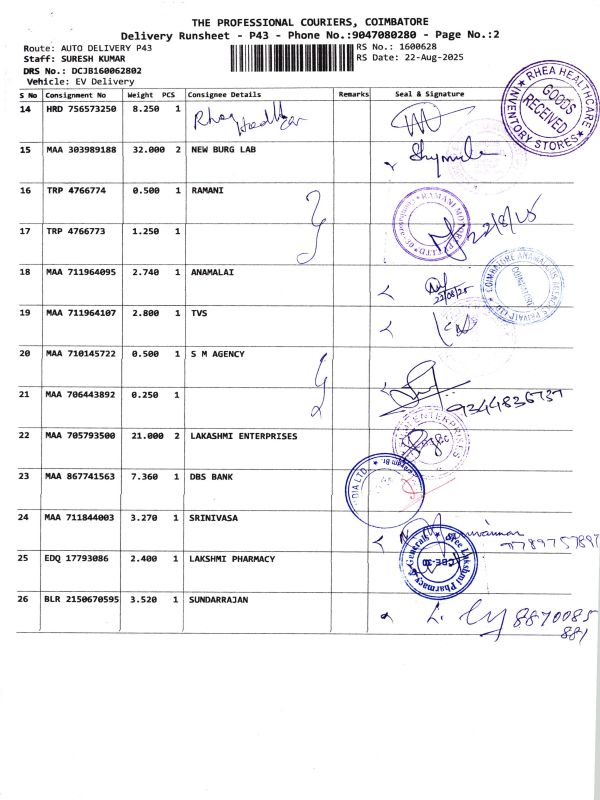 THE PROFESSIONAL COURIERS, COIMBATORE
Delivery Runsheet - P43 - Phone No.:9047080280 - Page No.:2
Route: AUTO DELIVERY P43 RS No.: 1600628
Staff: SURESH KUMAR RS Date: 22-Aug-2025
DRS No.: DCJB160062802
Vehicle: EV Delivery
S No Consignment No Weight PCS Consignee Details Remarks Seal & Signature
14 HRD 756573250 8.250 1 Rhea Health Car
RHEA HEALTHCARE GOODS RECEIVED INVENTORY STORES
15 MAA 303989188 32.000 2 NEW BURG LAB
16 TRP 4766774 0.500 1 RAMANI
RAMANI
17 TRP 4766773 1.250 1 22/8/25
18 MAA 711964095 2.740 1 ANAMALAI 22/08/25
COIMBATORE ANAMALLAIS AGENCIES PRIVATE LTD
19 MAA 711964107 2.800 1 TVS
20 MAA 710145722 0.500 1 S M AGENCY
21 MAA 706443892 0.250 1 9344836737
22 MAA 705793500 21.000 2 LAKASHMI ENTERPRISES
ENTERPRISES
23 MAA 867741563 7.360 1 DBS BANK
DIA LTD.
24 MAA 711844003 3.270 1 SRINIVASA 9789757897
25 EDQ 17793086 2.400 1 LAKSHMI PHARMACY
Sree Lakshmi Pharmacy & Generals CBE-30
26 BLR 2150670595 3.520 1 SUNDARRAJAN 8870085
881